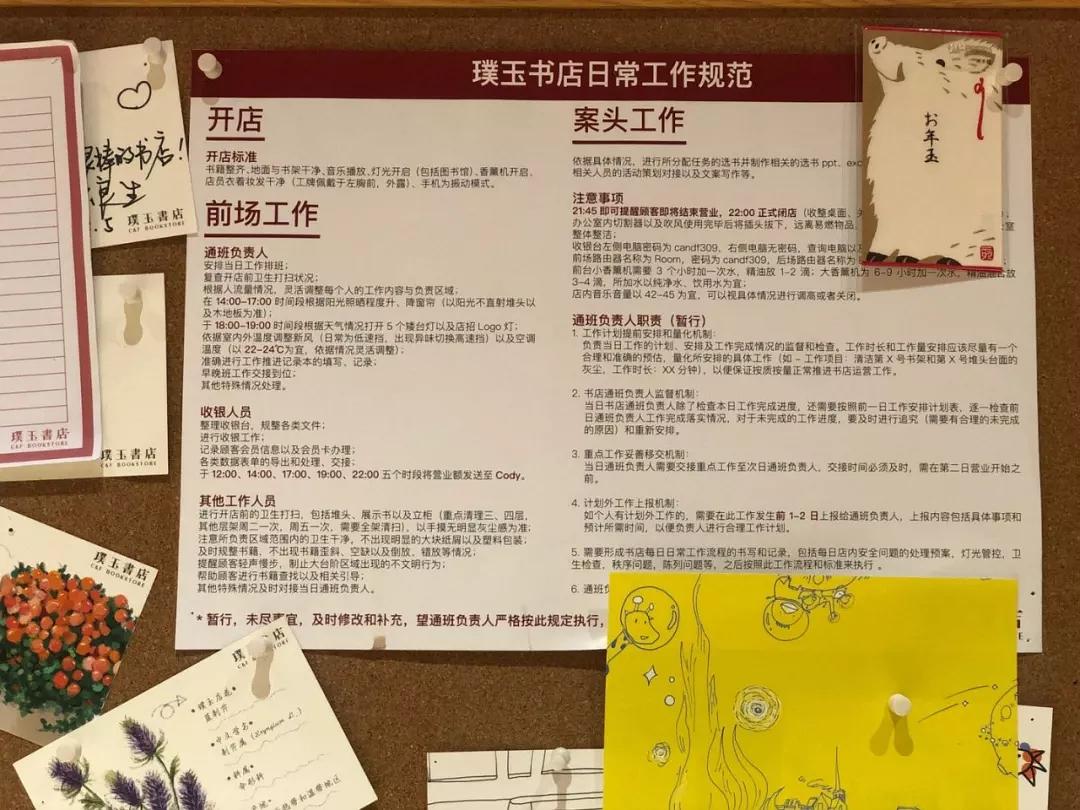 璞玉书店日常工作规范
开店
开店标准
书籍整齐、地面与书架干净、音乐播放、灯光开启（包括图书馆）、香薰机开启、
店员衣着妆发干净（工牌佩戴于左胸前，外露）、手机为振动模式。
前场工作
通班负责人
安排当日工作排班；
复查开店前卫生打扫状况；
根据人流量情况，灵活调整每个人的工作内容与负责区域；
在 14:00-17:00 时间段根据阳光照晒程度升、降窗帘（以阳光不直射堆头以
及木地板为准）；
于 18:00-19:00 时间段根据天气情况打开 5 个矮台灯以及店招 Logo 灯；
依据室内外温度调整新风（日常为低速挡，出现异味切换高速挡）以及空调
温度（以 22-24℃为宜，依据情况灵活调整）；
准确进行工作推进记录本的填写、记录；
早晚班工作交接到位；
其他特殊情况处理。
收银人员
整理收银台，规整各类文件；
进行收银工作；
记录顾客会员信息以及会员卡办理；
各类数据表单的导出和处理、交接；
于 12:00、14:00、17:00、19:00、22:00 五个时段将营业额发送至 Cody。
其他工作人员
进行开店前的卫生打扫，包括堆头、展示书以及立柜（重点清理三、四层，
其他层架周二一次，周五一次，需要全架清扫），以手摸无明显灰尘感为准；
注意所负责区域范围内的卫生干净，不出现明显的大块纸屑以及塑料包装；
及时规整书籍，不出现书籍歪斜、空缺以及倒放、错放等情况；
提醒顾客轻声慢步，制止大台阶区域出现的不文明行为；
帮助顾客进行书籍查找以及相关引导；
其他特殊情况及时对接当日通班负责人。
* 暂行，未尽事宜，及时修改和补充，望通班负责人严格按此规定执行，
案头工作
依据具体情况，进行所分配任务的选书并制作相关的选书 ppt、exc
相关人员的活动策划对接以及文案写作等。
注意事项
21:45 即可提醒顾客即将结束营业，22:00 正式闭店（收整桌面、关
办公室内切割器以及吹风使用完毕后将插头拔下，远离易燃物品。 室
整体整洁；
收银台左侧电脑密码为 candf309，右侧电脑无密码，查询电脑以及
前场路由器名称为 Room，密码为 candf309，后场路由器名称为
前台小香薰机需要 3 个小时加一次水，精油放 1-2 滴；大香薰机为 6-9 小时加一次水，精油混合放
3-4 滴，所加水以纯净水、饮用水为宜；
店内音乐音量以 42-45 为宜，可以视具体情况进行调高或者关闭。
通班负责人职责（暂行）
1. 工作计划提前安排和量化机制：
负责当日工作的计划、安排及工作完成情况的监督和检查。工作时长和工作量安排应该尽量有一个
合理和准确的预估，量化所安排的具体工作（如 - 工作项目：清洁第 X 号书架和第 X 号堆头台面的
灰尘，工作时长：XX 分钟），以便保证按质按量正常推进书店运营工作。
2. 书店通班负责人监督机制：
当日书店通班负责人除了检查本日工作完成进度，还需要按照前一日工作安排计划表，逐一检查前
日通班负责人工作完成落实情况，对于未完成的工作进度，要及时进行追究（需要有合理的未完成
的原因）和重新安排。
3. 重点工作妥善移交机制：
当日通班负责人需要交接重点工作至次日通班负责人，交接时间必须及时，需在第二日营业开始之
前。
4. 计划外工作上报机制：
如个人有计划外工作的，需要在此工作发生前 1-2 日上报给通班负责人，上报内容包括具体事项和
预计所需时间，以便负责人进行合理工作计划。
5. 需要形成书店每日日常工作流程的书写和记录，包括每日店内安全问题的处理预案，灯光管控，卫
生检查，秩序问题，陈列问题等，之后按照此工作流程和标准来执行 。
6. 通班
お年玉
棒的书店!
璞玉書店
C&F BOOKSTORE
璞玉書店
C&F BOOKSTORE
璞玉書店
C&F BOOKSTORE
璞玉書店
C&F BOOKSTORE
璞玉店花
蓝刺芹
中文学名
刺芹属 (Eryngium L.)
科属
伞形科